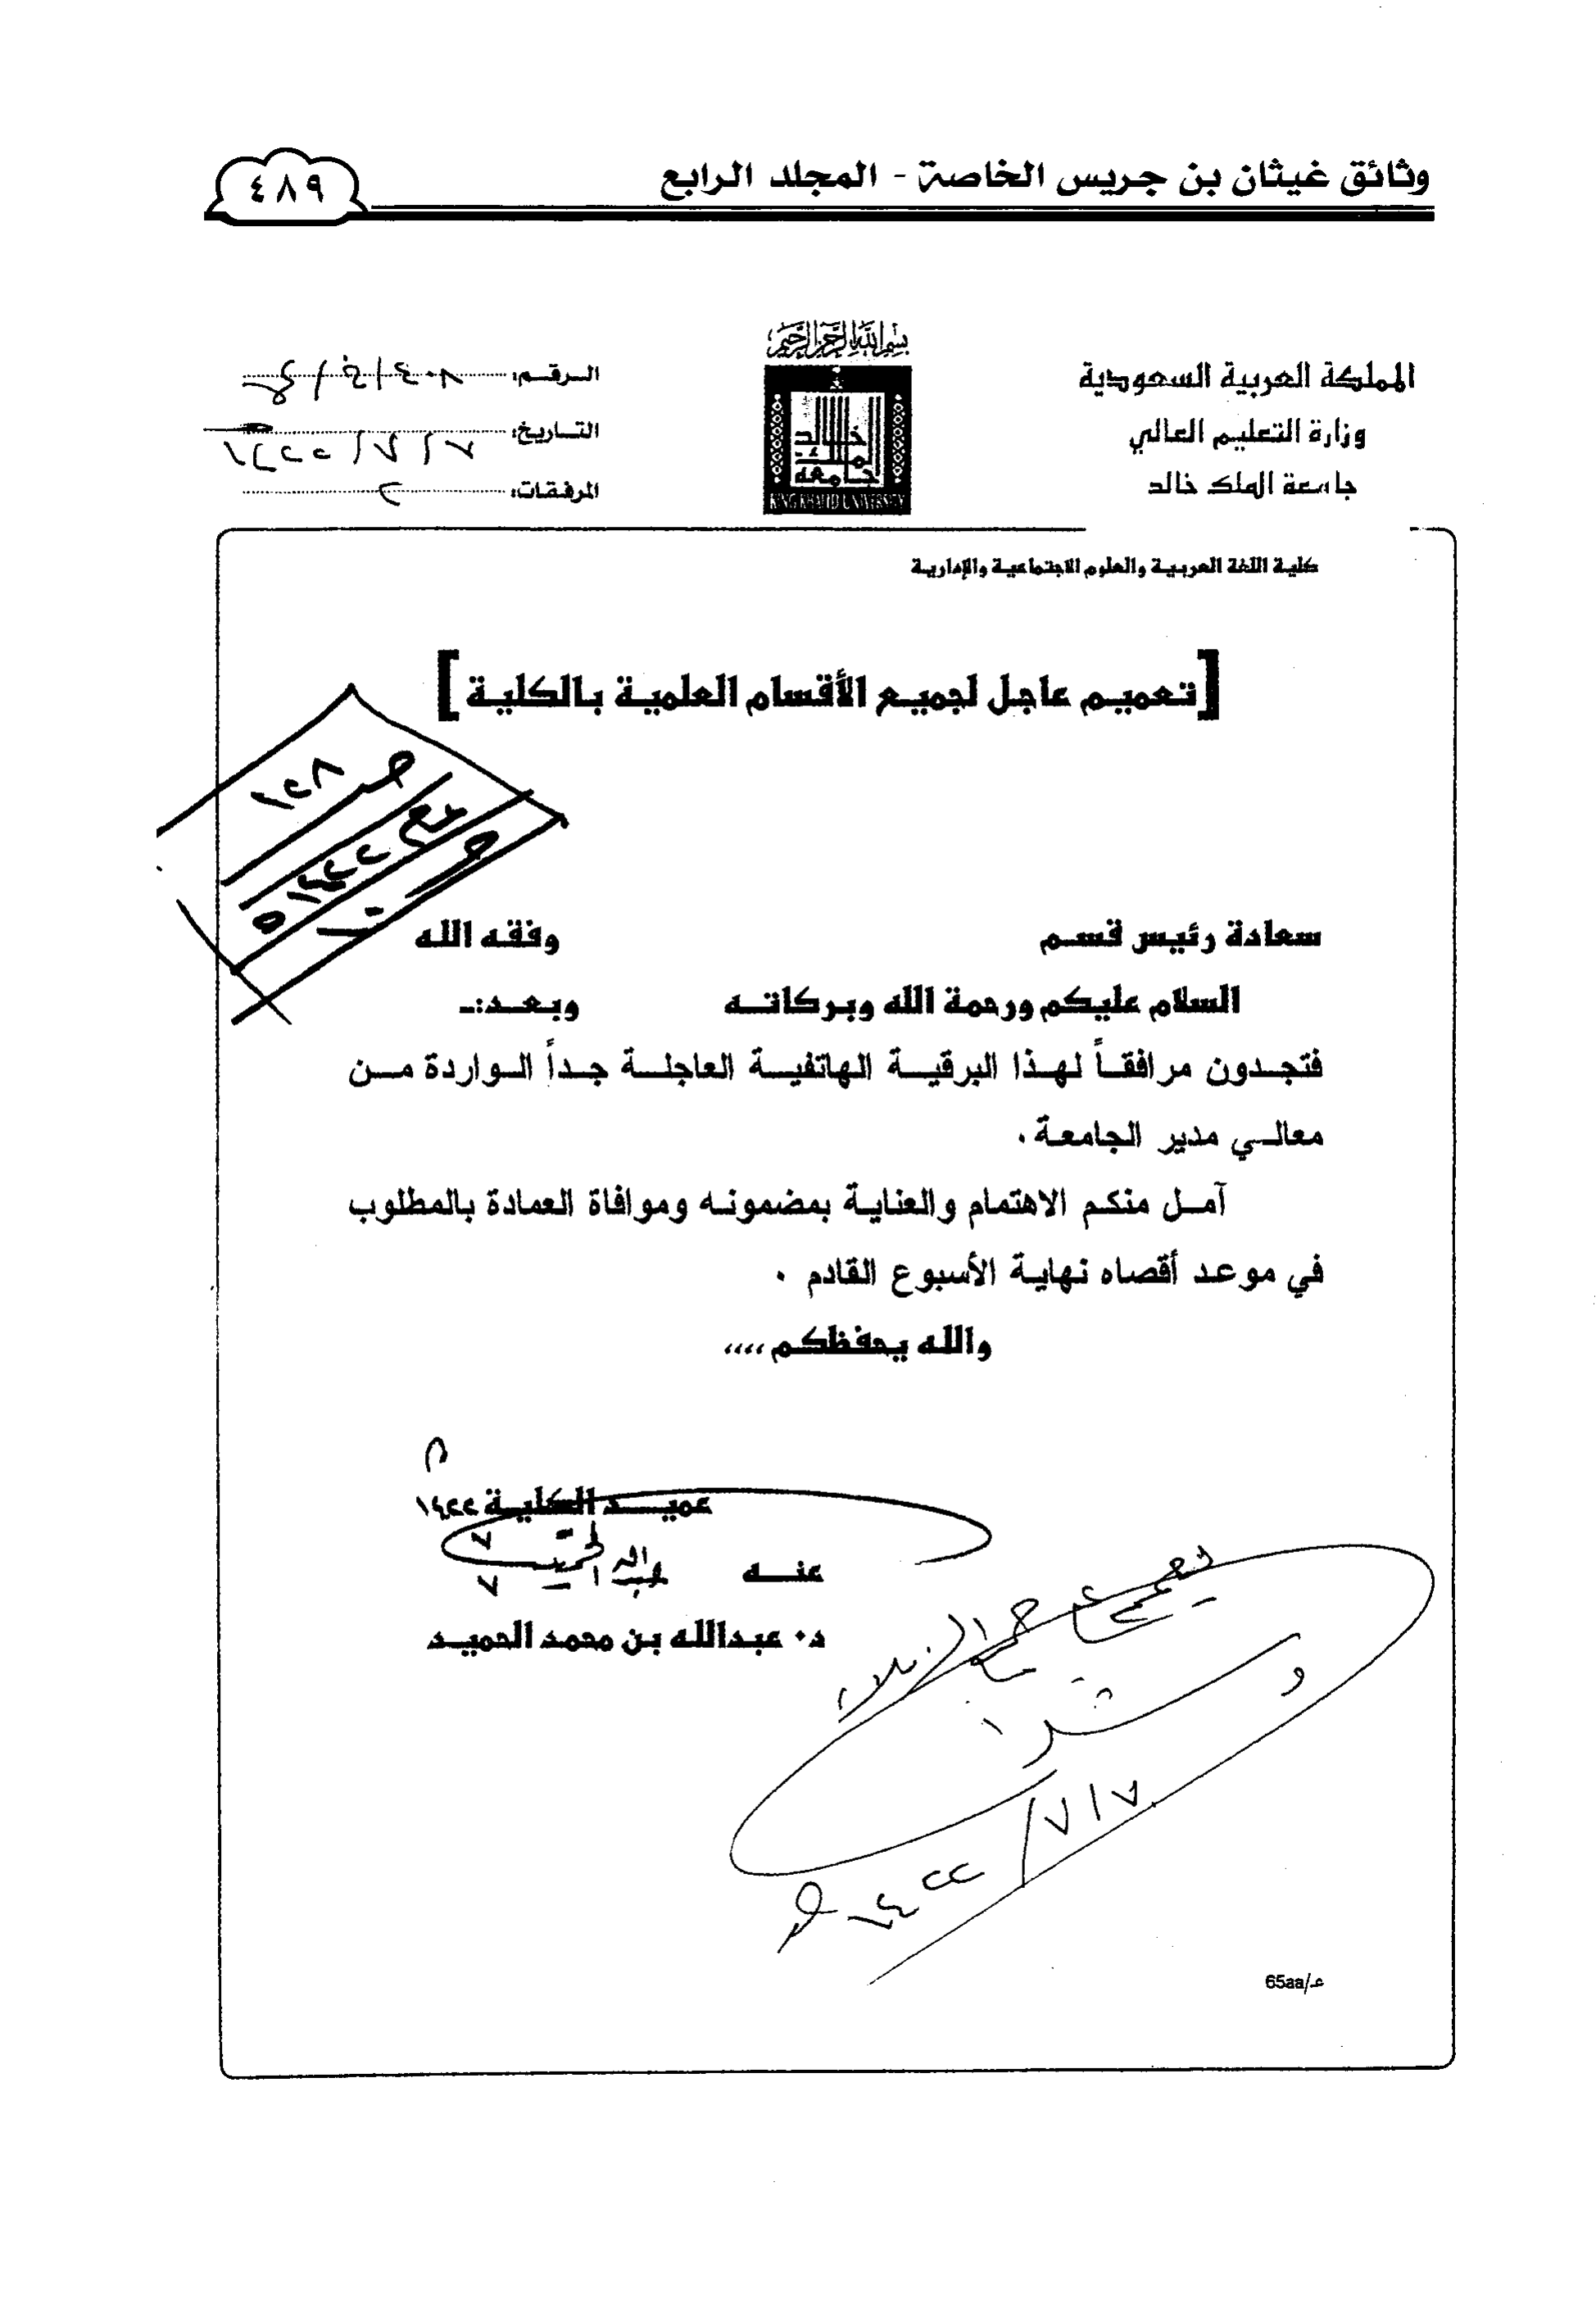 وثائق غيثان بن جريس الخاصة - المجلد الرابع
٤٨٩
بسم الله الرحمن الرحيم
المملكة العربية السعودية
وزارة التعليم العالي
جامعة الملك خالد
جامعة الملك خالد
KING KHALID UNIVERSITY
الرقم:
التاريخ: ٧ / ٧ / ١٤٢٢
المرفقات:
كلية اللغة العربية والعلوم الاجتماعية والإدارية
[تعميم عاجل لجميع الأقسام العلمية بالكلية]
ص ١٢٨
مع
١٤٢٢هـ
سعادة رئيس قسم وفقه الله
السلام عليكم ورحمة الله وبركاته وبعد:-
فتجدون مرافقاً لهذا البرقية الهاتفية العاجلة جداً الواردة من
معالي مدير الجامعة .
آمل منكم الاهتمام والعناية بمضمونه وموافاة العمادة بالمطلوب
في موعد أقصاه نهاية الأسبوع القادم .
والله يحفظكم ،،،،
عميد الكلية ١٤٢٢
٧
٧
عنه
د. عبدالله بن محمد الحميد
وشكرا
٧/٧/١٤٢٢
65aa/ـع